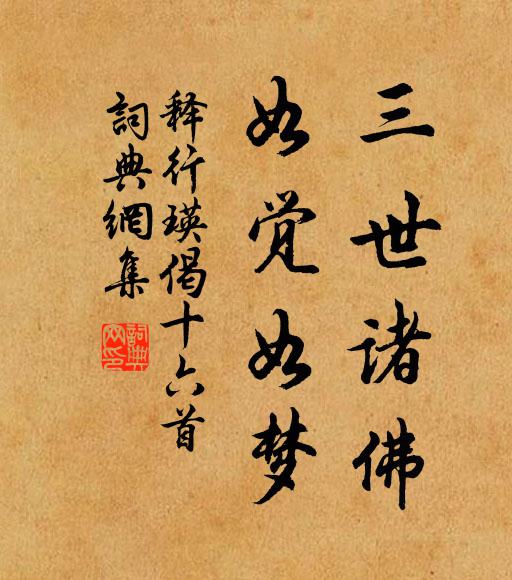 三世诸佛
如觉如梦
释行瑛偈十六首
詞典網集
詞典网印